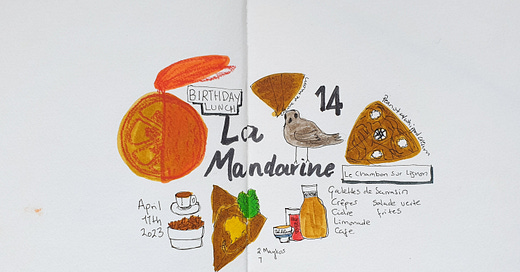 BIRTHDAY
LUNCH
La
Mandarine
14
Le Chambon sur Lignon
April
11th
2023
Galettes de Sarrasin
Crêpes Salade verte
Cidre frites
Limonade
Café
7